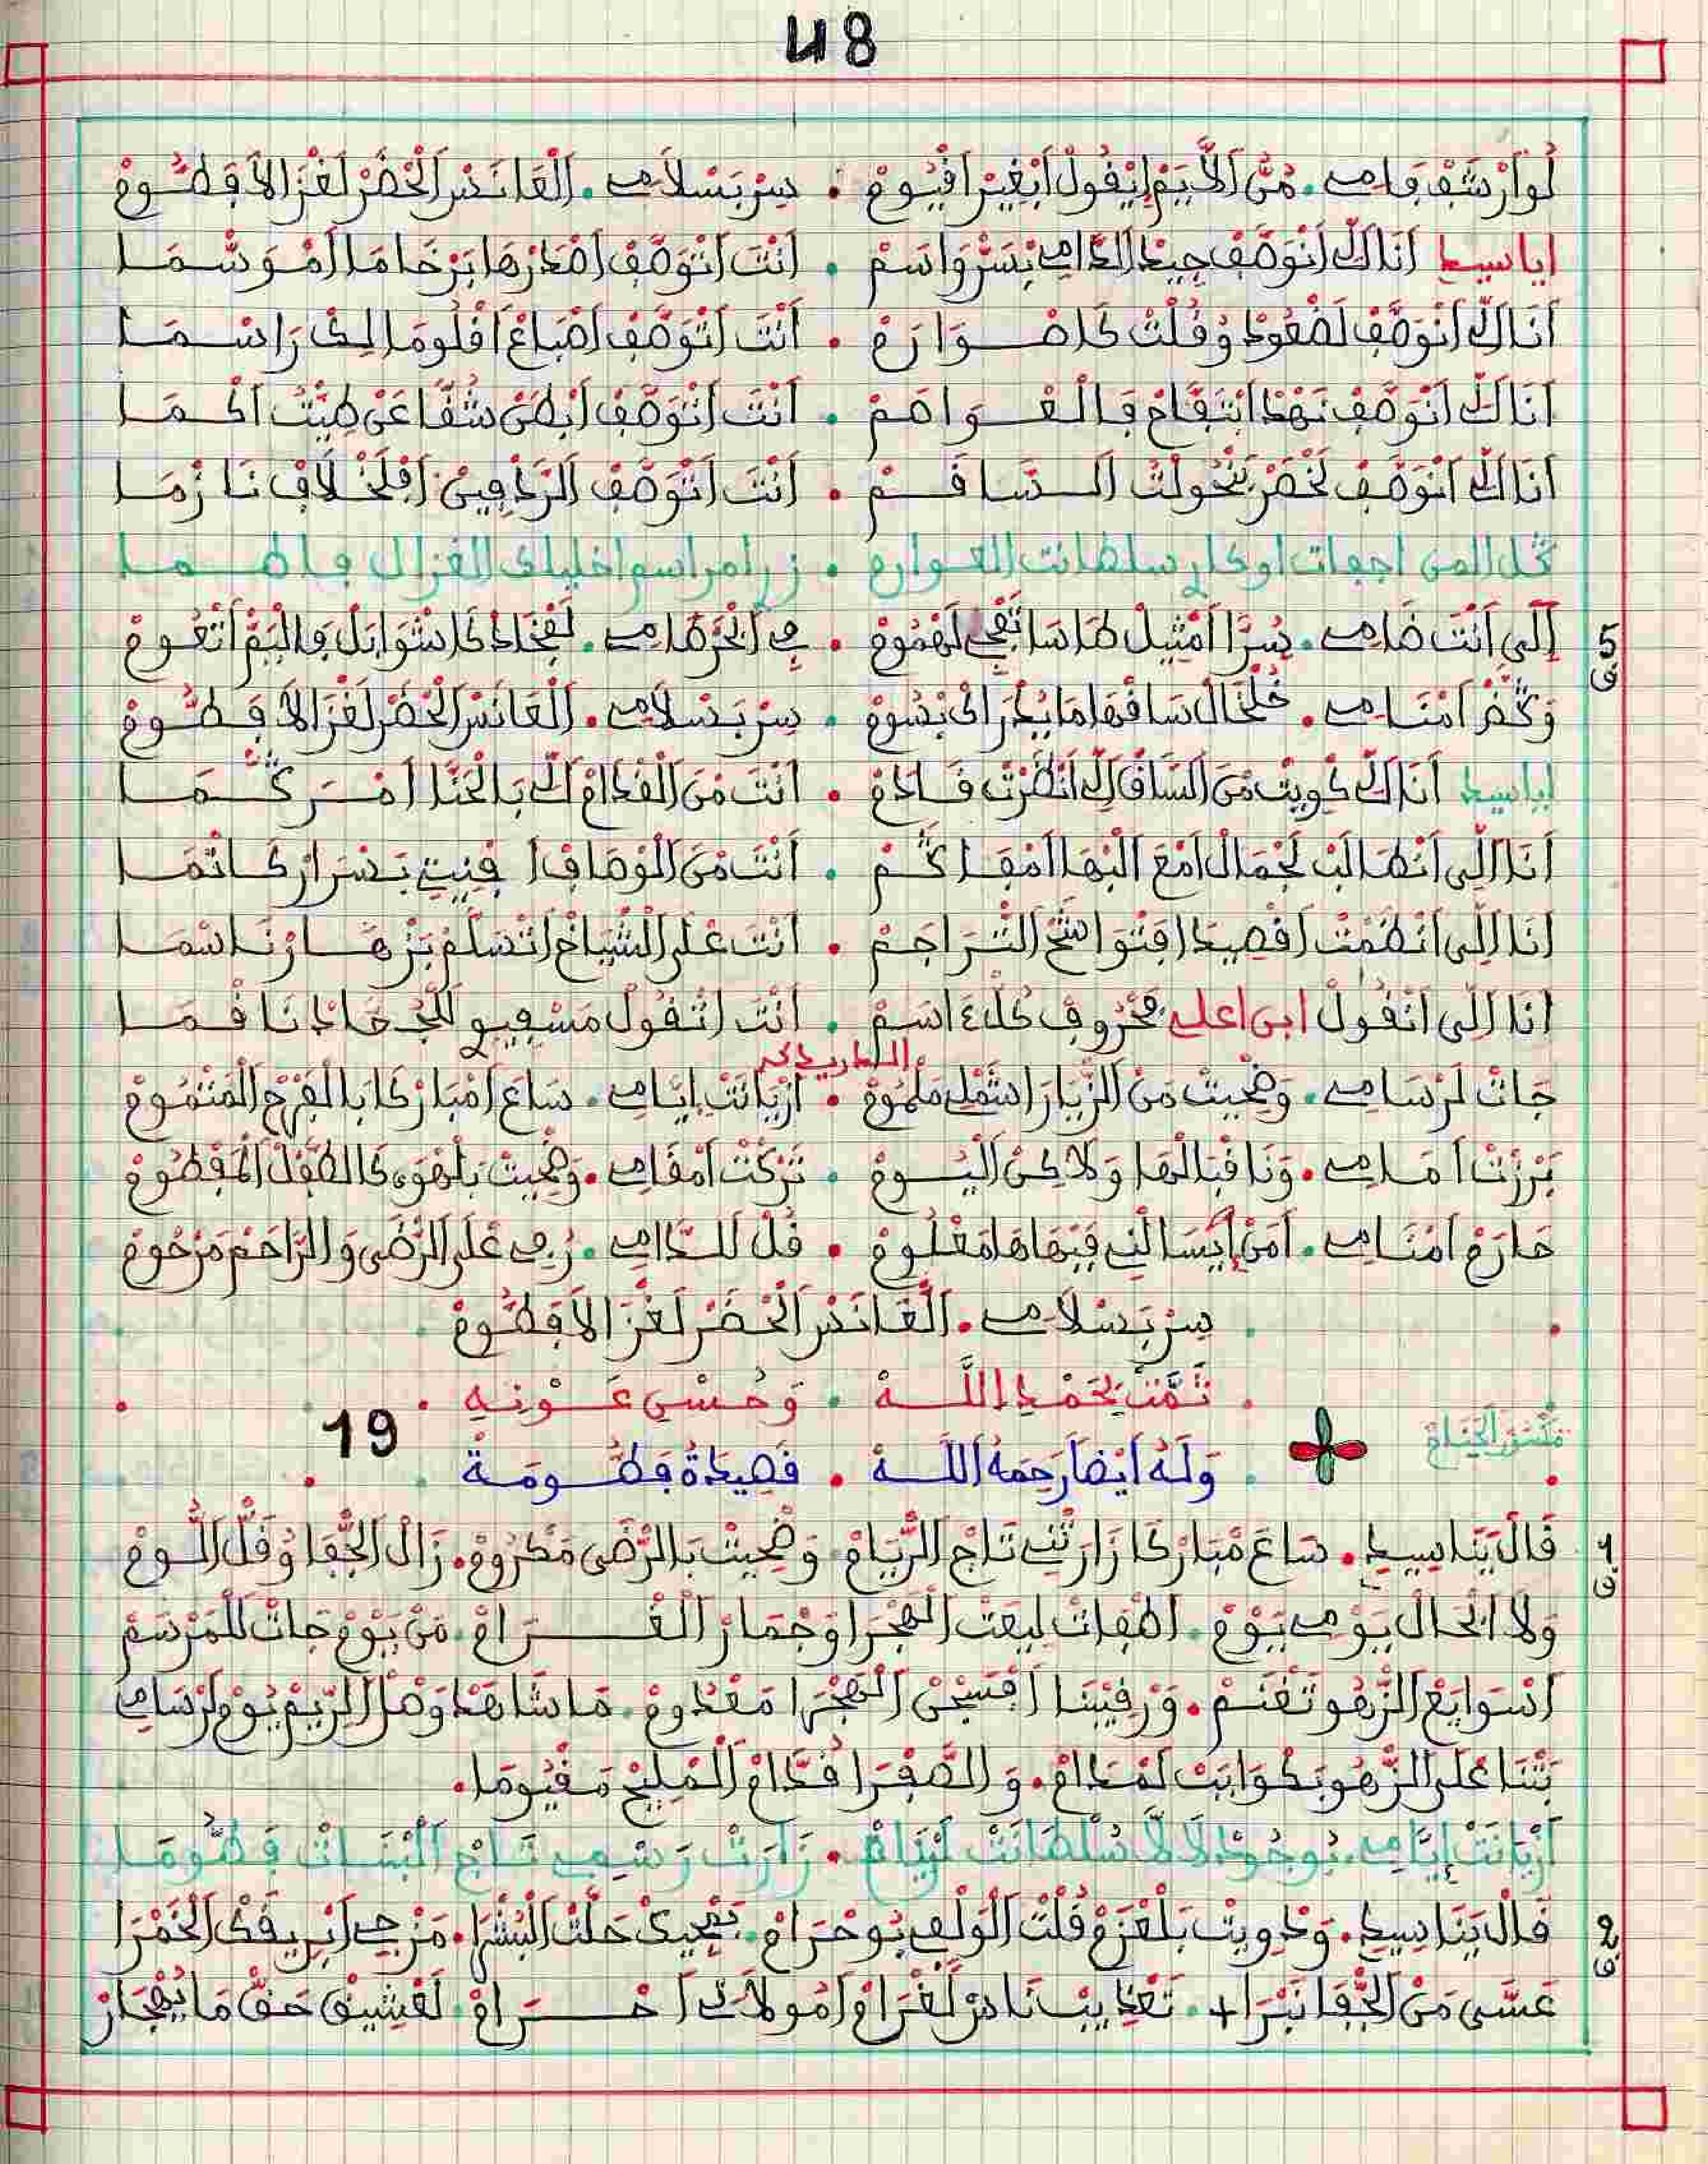 48
لُوَارْشَڢْ ڢَامِي . مَنْ اَلاَّ يَمْ اِيْفُولْ اَبْغِيرْ اَفْيُومْ . سِرْ بَسْلاَمِي . اَلْعَانَسْ اَلْخَضَرْ لَغْزَالاَ ڢَطُّومْ
اياسيد اَنَا اَلِّي اَنْوَصَّڢْ جِيدْ اَلدَّامِي بَسَرْ وَاسَمْ . اَنْتَ اَتْوَصَّڢْ اَصْدَرْهَا بَرْخَامَا اَمْوَشْمَا
اَنَا اَلِّي اَنْوَصَّڢْ لَضْعُودْ وُفُلْتْ كَا صْوَارَمْ . اَنْتَ اَتْوَصَّڢْ اَصْبَاعْ اَفْلُومَا لِكْ رَاسْمَا
اَنَا اَلِّي اَنْوَصَّڢْ نَهْدْ اَبْتَڢَّاحْ ڢَالْغْوَاصَمْ . اَنْتَ اَتْوَصَّڢْ اَبْطَنْ شُفَّا عَنْ طِيَّتْ اَكْمَا
اَنَا اَلِّي اَنْوَصَّڢْ لَخْصَرْ بَنْحُولْتْ اَلسَّافَمْ . اَنْتَ اَتْوَصَّڢْ اَلرَّدْڢِينْ اَڢْلَخْلاَفْ نَازْمَا
سلطانت الغوارم . زر امراسم اخليلك الغزال ڢاطما
5
ف
اَلِّي اَنْتَ ضَامِي . سُرَّا اَمْثِيلْ طَاسَا تَنْڢِي لَهْمُومْ . ڢِي اَلْحَرْهَامِي . لَڢْخَادْ كَا شْوَابَلْ ڢَالْيَمْ اَتْعُومْ
اَمْنَامِي . خُلْخَالْ سَافْهَا مَا يُدْرَاكْ بْسُومْ . سِرْ بَسْلاَمِي . اَلْعَانَسْ اَلْخَضَرْ لَغْزَالاَ ڢَطُّومْ
اياسيد اَنَا اَلِّي كْوِيتْ مَنْ اَلسَّافْ اَلِّي اَنْظَرْتْ فَادَمْ . اَنْتَ مَنْ اَلْفْدَامْ اَلِّي بَالْحَنَّا
اَنَا اَلِّي اَنْطَالَبْ لَجْمَالْ اَمْعَ اَلْبْهَا . اَنْتَ مَنْ اَلْوْصَافْ اَ ڢْنِيتِي بَسْرَارْ كَاتْمَا
اَنَا اَلِّي اَنْظَمْتْ اَفْصِيدَا اَڢْتْوَاشَحْ اَلتْرَاجَمْ . اَنْتَ عْلَى اَلشْيَاخْ اَتْسَلَّمْ بَزْهَارْ نَاسْمَا
اَنَا اَلِّي اَنْفُولْ ابن اعلي مَحْرُوفْ كُلّْ ءَاسَمْ . اَنْتَ اَتْفُولْ مَسْڢِيوِي لَلْجْحَادْ نَافْمَا
جَاتْ لَرْسَامِي . وَضْحِيتْ مَنْ اَلزّْيَارَا شَمْلِي مَلْمُومْ . اَزْيَانَتْ اِيَّامِي . سَاعَ اَمْبَارْكَا بَالْڢَرْحْ اَلْمَنْمُومْ
بَرْزَتْ اَمَامِي . وَنَا فْبَالْهَا وَلاَكِنْ اَلْيُومْ . تَرْكَتْ اَمْقَامِي . وَضْحِيتْ بَلْهْوَى كَالطَّڢْلْ اَلْمَڢْطُومْ
حَارَمْ اَمْنَامِي . اَمَنْ اَيْسَالْنِي ڢِيهَا هَا مَعْلُومْ . فُلْ لَلدَّامِي . رَبِّي عْلَى اَلرْضَى وَالرَّاحَمْ مَرْحُومْ
سِرْ بَسْلاَمِي . اَلْعَانَسْ اَلْخَضَرْ لَغْزَالاَ ڢَطُّومْ
تَمَّتْ بِحَمْدِ اللَّهْ . وَحُسْنِ عَوْنِهِ
19
وَلَهُ اَيْضاً رَحِمَهُ اَللَّهْ . فَصِيدَةُ ڢَطُّومَةْ
1
ف
فَالْ يَنَا سِيدِي . سَاعَ مْبَارْكَا زَارَتْنِي تَاجْ اَلرّْيَامْ وَضْحِيتْ بَالرْضَى مَكْرُومْ . زَالْ اَلْجْڢَا وُفَلّْ اَللُّومْ
وَلاَ اَلْحَالْ يَوْمِي يَوْمْ . اَطْڢَاتْ لِيعَتْ اَلْهَجْرَا وَجْمَارْ اَلْغْرَامْ . مَنْ يَوْمْ جَاتْ لَلْمَرْسَمْ
اَسْوَايَعْ اَلزَّهْو تَغْنَمْ . وَرْفِيبْنَا اَڢْسَجْنْ اَلْهَجْرَا مَعْدُومْ . مَا شَاهَدْ وَصْلْ اَلرِّيمْ يُومْ لَرْسَامِي
بَتْنَا عْلَى اَلزّْهُو بَكْوَابَتْ لَمْدَامْ . وَالصَّڢْرَا فُدَّامْ اَلْمْلِيحْ مَفْيُومَا .
اَزْيَانَتْ اِيَّامِي . بُوجُودْ لاَلاَّ سُلْطَانَتْ لَرْيَامْ . زَارَتْ رَسْمِي تَاجْ اَلْبْنَاتْ ڢَطُّومَا
2
ف
فَالْ يَنَا سِيدِي . وَدْوِيتْ بَلْعْزَمْ فُلْتْ اَلْوَلْڢْ بُوحْرَامْ . بَمْجِيكْ حَلَّتْ اَلْبُشْرَا . مَزْجِي اَبْرِيفَكْ اَلْخَمْرَا
عَسَّى مَنْ اَلْجْڢَا نَبْرَا + . تَعْدِيبْ نَاسْ لَغْرَامْ اَمُولاَتِي اَحْرَامْ . لَعْشِيفْ حَقّْ مَا يُهْجَارْ